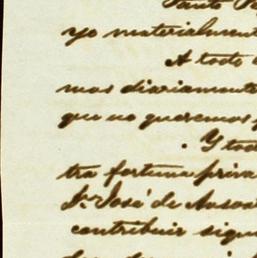 Tanto
yo materialment
A todo
mos diariamente
que no queremos
. Y tod
tra fortuna priva
Sr. José de Ansoa
contribuir sigui